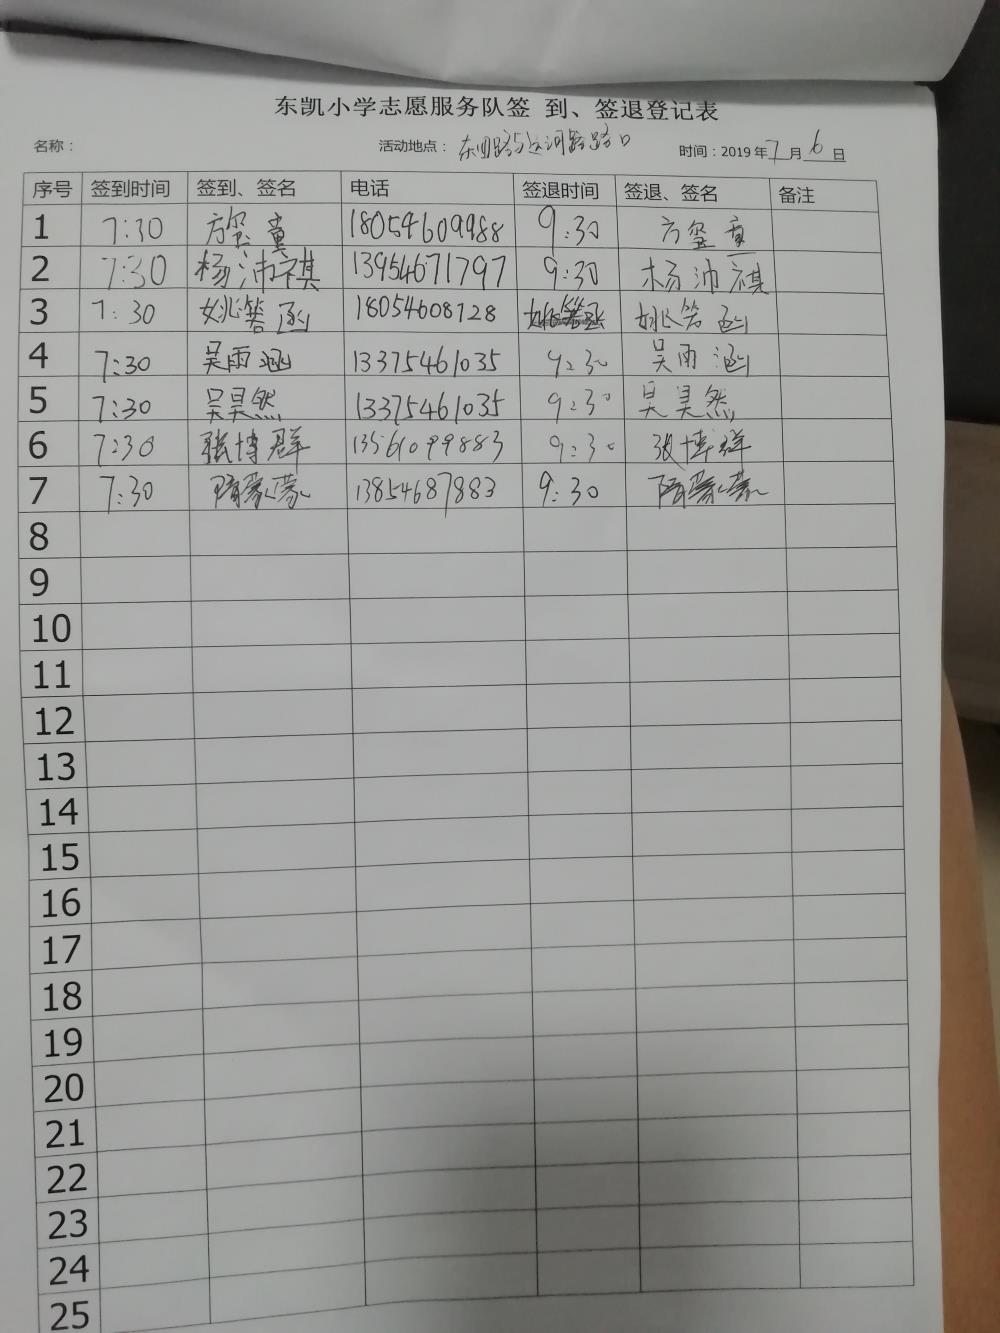 东凯小学志愿服务队签 到、签退登记表
名称： 活动地点：东四路与运河路路口 时间：2019年7月6日
序号 签到时间 签到、签名 电话 签退时间 签退、签名 备注
1 7:30 方玺童 18054609988 9:30 方玺童
2 7:30 杨沛祺 13954671797 9:30 杨沛祺
3 7:30 姚箬函 18054608128 姚箬函
4 7:30 吴雨涵 13375461035 9:30 吴雨涵
5 7:30 吴昊然 13375461035 9:30 吴昊然
6 7:30 张博群 13561099883 9:30 张博群
7 7:30 隋蒙蒙 13854687883 9:30 隋蒙蒙
8
9
10
11
12
13
14
15
16
17
18
19
20
21
22
23
24
25